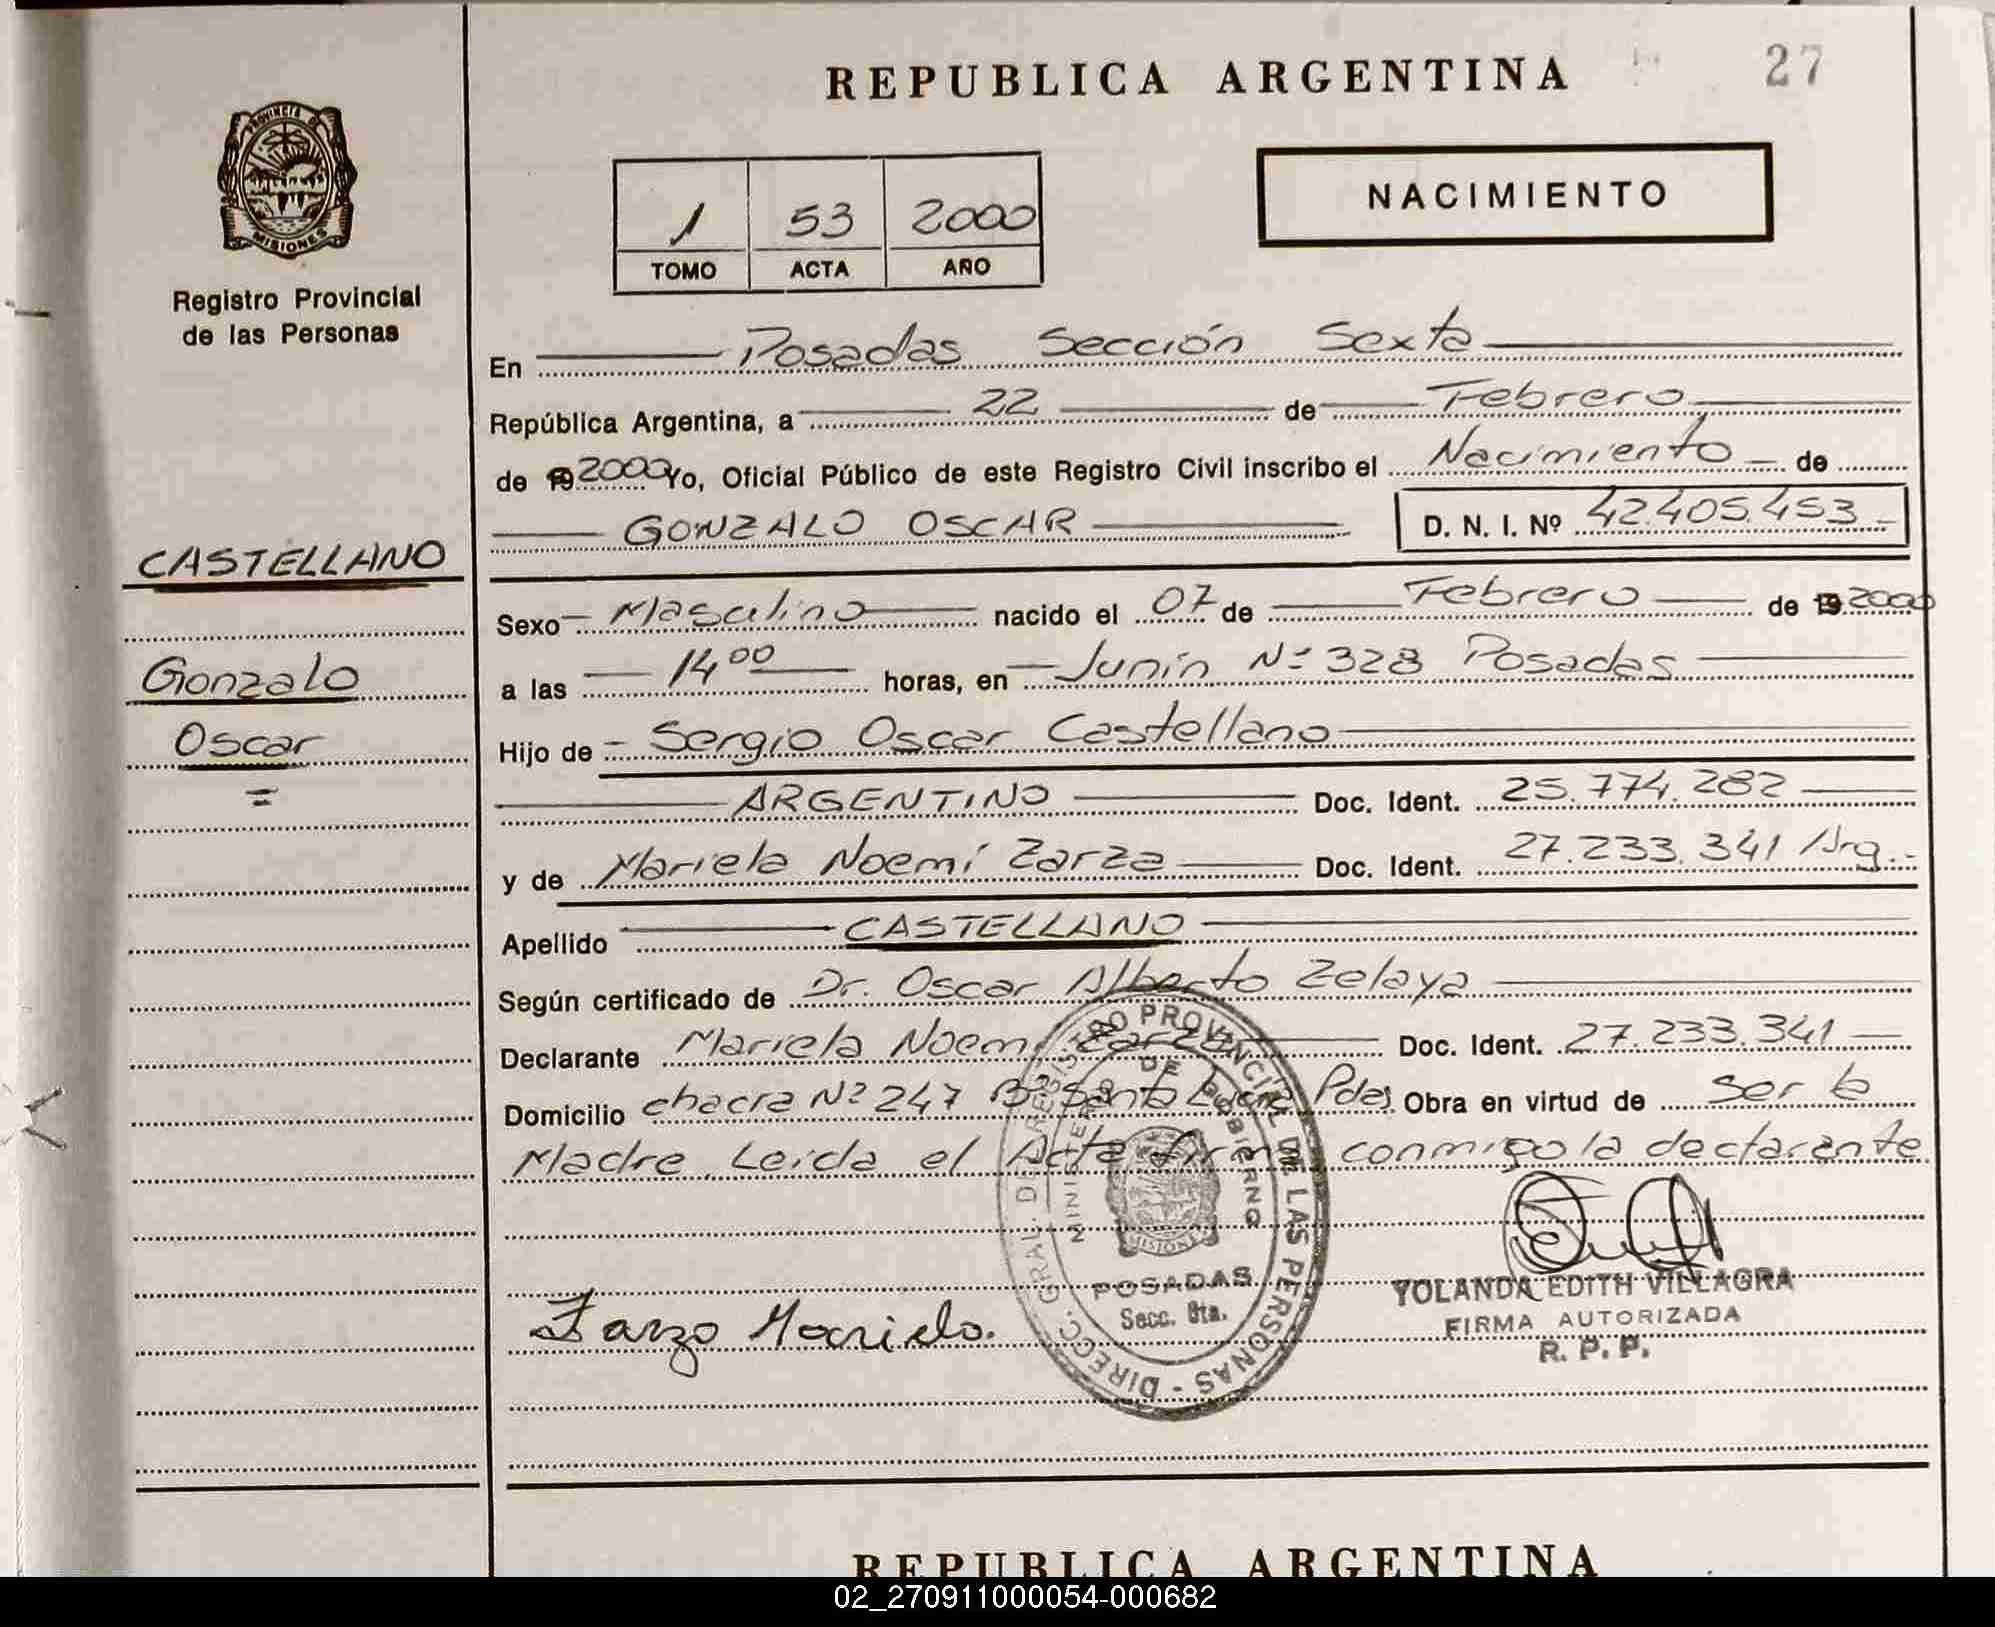 REPUBLICA ARGENTINA
27
PROVINCIA DE
MISIONES
Registro Provincial
de las Personas
1 53 2000
TOMO ACTA AÑO
NACIMIENTO
En Posadas Sección Sexta
República Argentina, a 22 de Febrero
de 19 2000 Yo, Oficial Público de este Registro Civil inscribo el Nacimiento de
GONZALO OSCAR D. N. I. Nº 42.405.453
CASTELLANO
Gonzalo
Oscar
Sexo Masculino nacido el 07 de Febrero de 19 2000
a las 14 00 horas, en Junín Nº 328 Posadas
Hijo de Sergio Oscar Castellano
ARGENTINO Doc. Ident. 25.774.282
y de Mariela Noemí Zarza Doc. Ident. 27.233.341 Arg.
Apellido CASTELLANO
Según certificado de Dr. Oscar Alberto Zelaya
Declarante Mariela Noemí Zarza Doc. Ident. 27.233.341
Domicilio chacra Nº 247 Bº Santa Lucía Pdas. Obra en virtud de ser la
Madre. Leída el Acta firma conmigo la declarante
DIRECC. GRAL. DE REGISTRO PROVINCIAL DE LAS PERSONAS -
MINISTERIO DE GOBIERNO
MISIONES
POSADAS
Secc. 6ta.
Zarza Mariela.
YOLANDA EDITH VILLAGRA
FIRMA AUTORIZADA
R. P. P.
REPUBLICA ARGENTINA
02_270911000054-000682